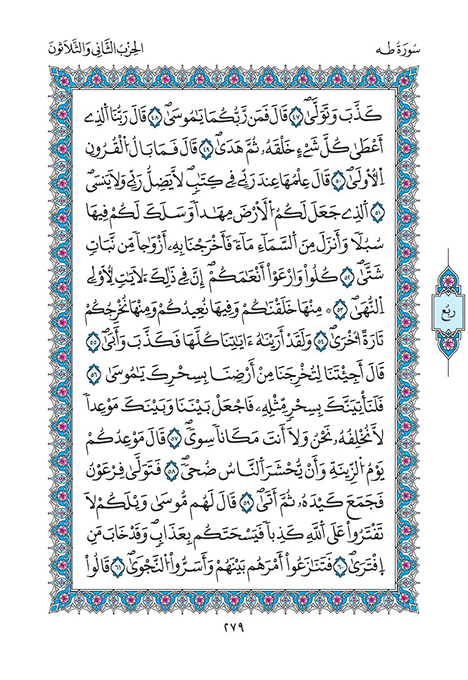 سُورَةُ طه
الحِزْبُ الثَّانِي وَالثَّلَاثُونَ
كَذَّبَ وَتَوَلَّىٰ ٤٧ قَالَ فَمَن رَّبُّكُمَا يَٰمُوسَىٰ ٤٨ قَالَ رَبُّنَا اَ۬لذِے
أَعْطَىٰ كُلَّ شَےْءٍ خَلْقَهُۥ ثُمَّ هَدَىٰ ٤٩ قَالَ فَمَا بَالُ اُ۬لْقُرُونِ
اِ۬لُاولَىٰ ٥٠ قَالَ عِلْمُهَا عِندَ رَبِّے فِے كِتَٰبٖ لَّا يَضِلُّ رَبِّے وَلَا يَنسَى
٥١ اَ۬لذِے جَعَلَ لَكُمُ اُ۬لَارْضَ مِهَٰداٗ وَسَلَكَ لَكُمْ فِيهَا
سُبُلاٗ وَأَنزَلَ مِنَ اَ۬لسَّمَآءِ مَآءٗ فَأَخْرَجْنَا بِهِۦٓ أَزْوَٰجاٗ مِّن نَّبَاتٖ
شَتَّىٰ ٥٢ كُلُواْ وَارْعَوَاْ اَنْعَٰمَكُمُۥٓ إِنَّ فِے ذَٰلِكَ ءَلَأيَٰتٖ لِّأُوْلِے
اِ۬لنُّهَىٰ ٥٣ ۞ مِنْهَا خَلَقْنَٰكُمْ وَفِيهَا نُعِيدُكُمْ وَمِنْهَا نُخْرِجُكُمْ
تَارَةً اُخْرَىٰ ٥٤ وَلَقَدَ اَرَيْنَٰهُ ءَايَٰتِنَا كُلَّهَا فَكَذَّبَ وَأَبَىٰ ٥٥
قَالَ أَجِئْتَنَا لِتُخْرِجَنَا مِنَ اَرْضِنَا بِسِحْرِكَ يَٰمُوسَىٰ ٥٦
فَلَنَاتِيَنَّكَ بِسِحْرٖ مِّثْلِهِۦ فَاجْعَلْ بَيْنَنَا وَبَيْنَكَ مَوْعِداٗ
لَّا نُخْلِفُهُۥ نَحْنُ وَلَآ أَنتَ مَكَاناٗ سِويٗ ٥٧ قَالَ مَوْعِدُكُمْ
يَوْمُ اُ۬لزِّينَةِ وَأَنْ يُّحْشَرَ اَ۬لنَّاسُ ضُحيٗ ٥٨ فَتَوَلَّىٰ فِرْعَوْنُ
فَجَمَعَ كَيْدَهُۥ ثُمَّ أَتَىٰ ٥٩ قَالَ لَهُم مُّوسَىٰ وَيْلَكُمْ لَا
تَفْتَرُواْ عَلَى اَ۬للَّهِ كَذِباٗ فَيَسْحَتَكُم بِعَذَابٖ وَقَدْ خَابَ مَنِ
اِ۪فْتَرَىٰ ٦٠ فَتَنَٰزَعُوٓاْ أَمْرَهُم بَيْنَهُمْ وَأَسَرُّواْ اُ۬لنَّجْوَىٰ ٦١ قَالُوٓاْ
ربع
٢٧٩